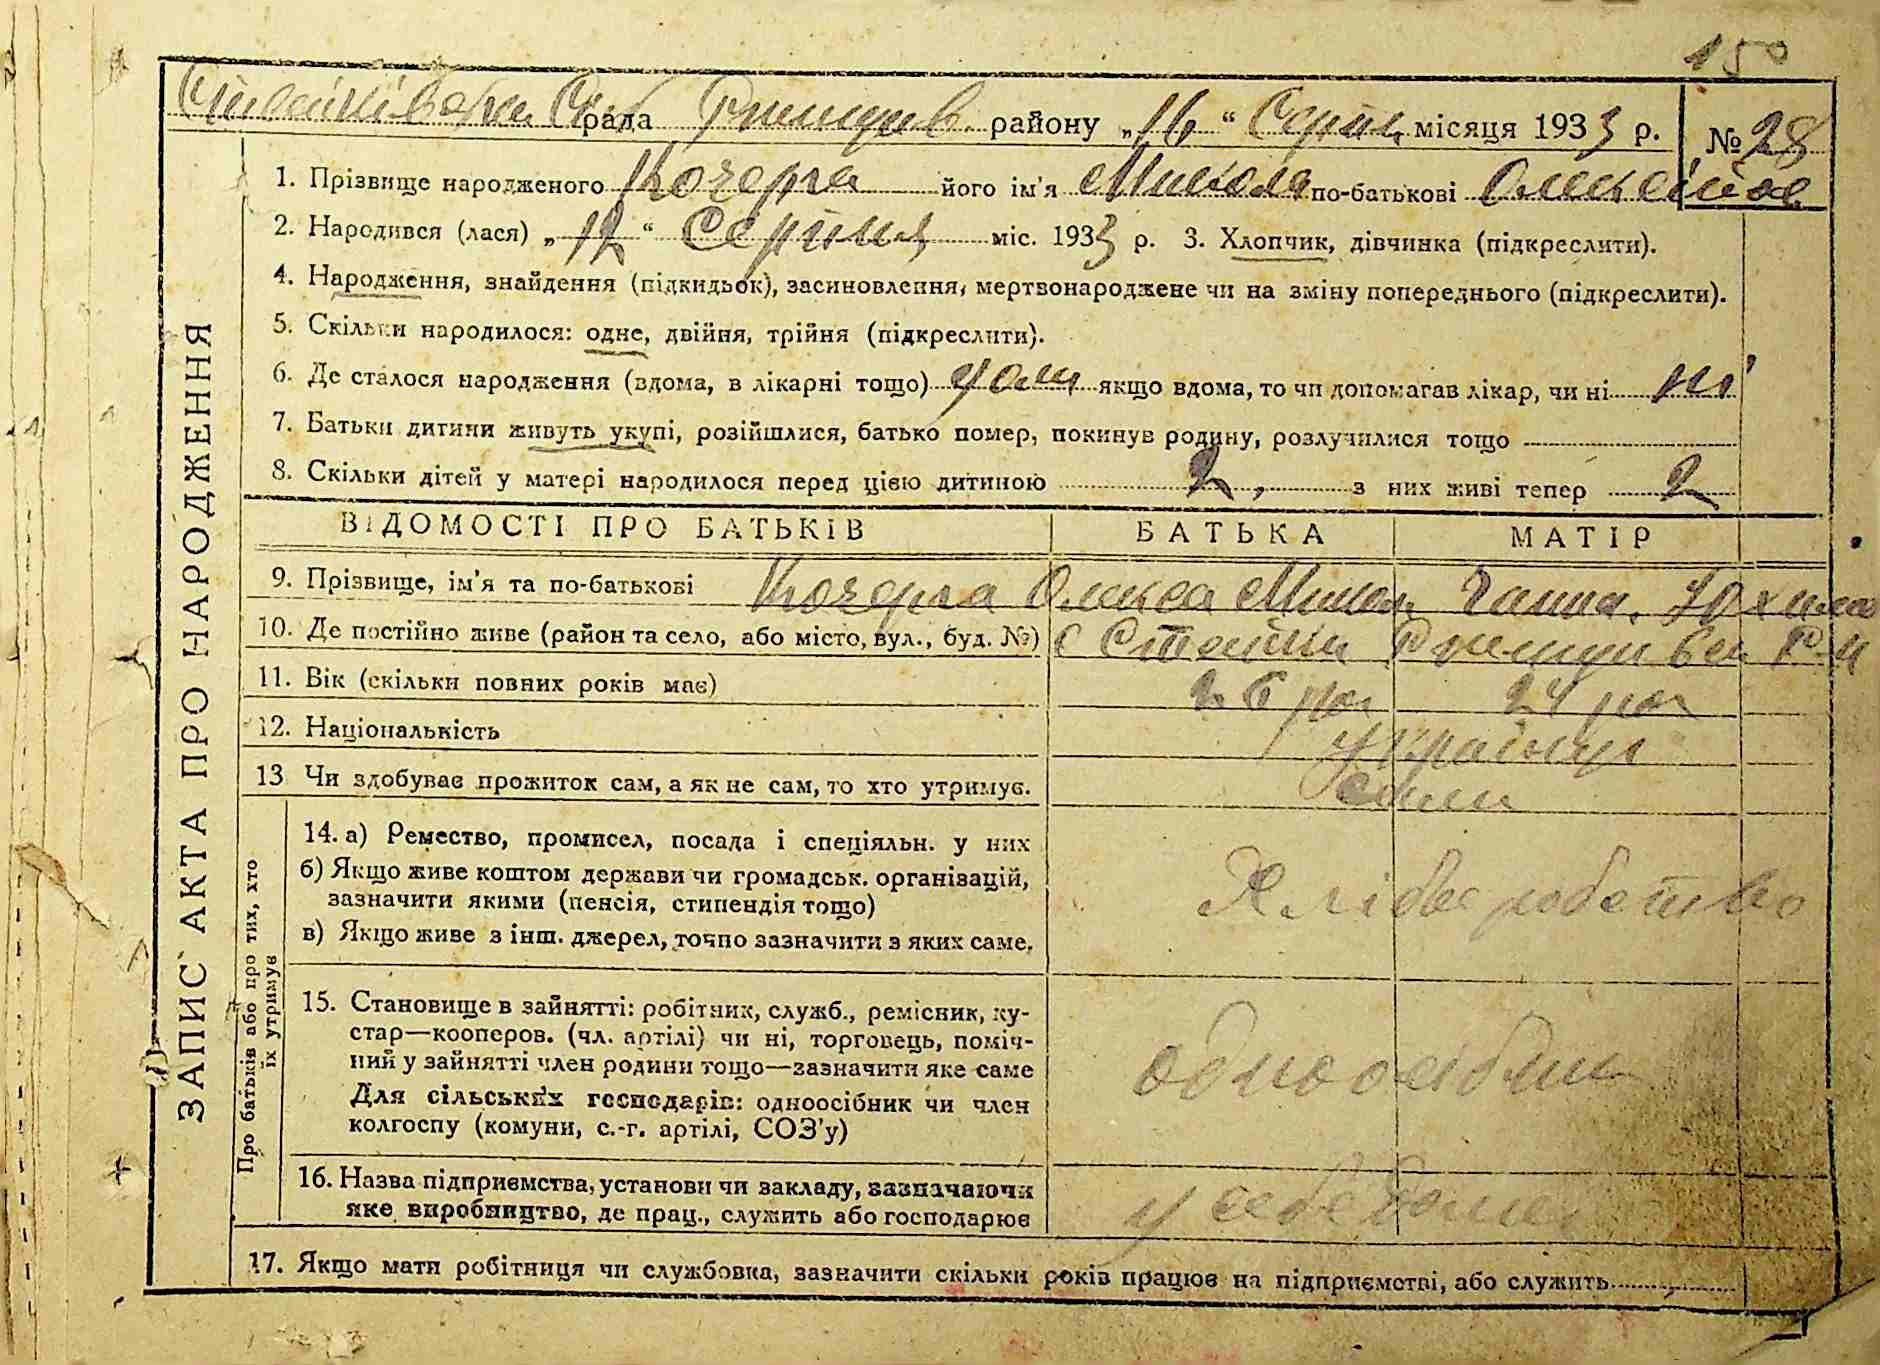 150
Стайківська Сіл рада Ржищів. району „16“ Серпн. місяця 1933 р. № 28
1. Прізвище народженого Кочерга його ім'я Микола по-батькові Олексійов
2. Народився (лася) „12“ Серпня міс. 1933 р. 3. Хлопчик, дівчинка (підкреслити).
4. Народження, знайдення (підкидьок), засиновлення, мертвонароджене чи на зміну попереднього (підкреслити).
5. Скільки народилося: одне, двійня, трійня (підкреслити).
6. Де сталося народження (вдома, в лікарні тощо) якщо вдома, то чи допомагав лікар, чи ні ні
7. Батьки дитини живуть укупі, розійшлися, батько помер, покинув родину, розлучилися тощо
8. Скільки дітей у матері народилося перед цією дитиною 2, з них живі тепер 2
ВІДОМОСТІ ПРО БАТЬКІВ БАТЬКА МАТІР
9. Прізвище, ім'я та по-батькові Кочерга Олекса Микол. Ганна. Юхимов
10. Де постійно живе (район та село, або місто, вул., буд. №) с Стайки Ржищивськ. Р-н
11. Вік (скільки повних років має) 26 рок 24 рок
12. Національність українці
13 Чи здобуває прожиток сам, а як не сам, то хто утримує. сами
14. а) Ремество, промисел, посада і спеціяльн. у них
б) Якщо живе коштом держави чи громадськ. організацій,
зазначити якими (пенсія, стипендія тощо)
в) Якщо живе з інш. джерел, точно зазначити з яких саме.
Хлібробство
15. Становище в зайнятті: робітник, служб., ремісник, ку-
стар—кооперов. (чл. артілі) чи ні, торговець, поміч-
ний у зайнятті член родини тощо—зазначити яке саме
Для сільських господарів: одноосібник чи член
колгоспу (комуни, с.-г. артілі, СОЗ'у)
одноосібник
16. Назва підприємства, установи чи закладу, зазначаючи
яке виробництво, де прац., служить або господарює
у себе дома
17. Якщо мати робітниця чи службовка, зазначити скільки років працює на підприємстві, або служить
ЗАПИС АКТА ПРО НАРОДЖЕННЯ
Про батьків або про тих, хто
їх утримує